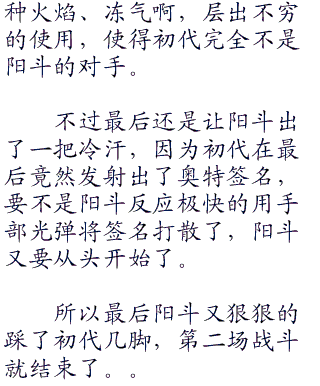 种火焰、冻气啊，层出不穷
的使用，使得初代完全不是
阳斗的对手。
不过最后还是让阳斗出
了一把冷汗，因为初代在最
后竟然发射出了奥特签名，
要不是阳斗反应极快的用手
部光弹将签名打散了，阳斗
又要从头开始了。
所以最后阳斗又狠狠的
踩了初代几脚，第二场战斗
就结束了。。